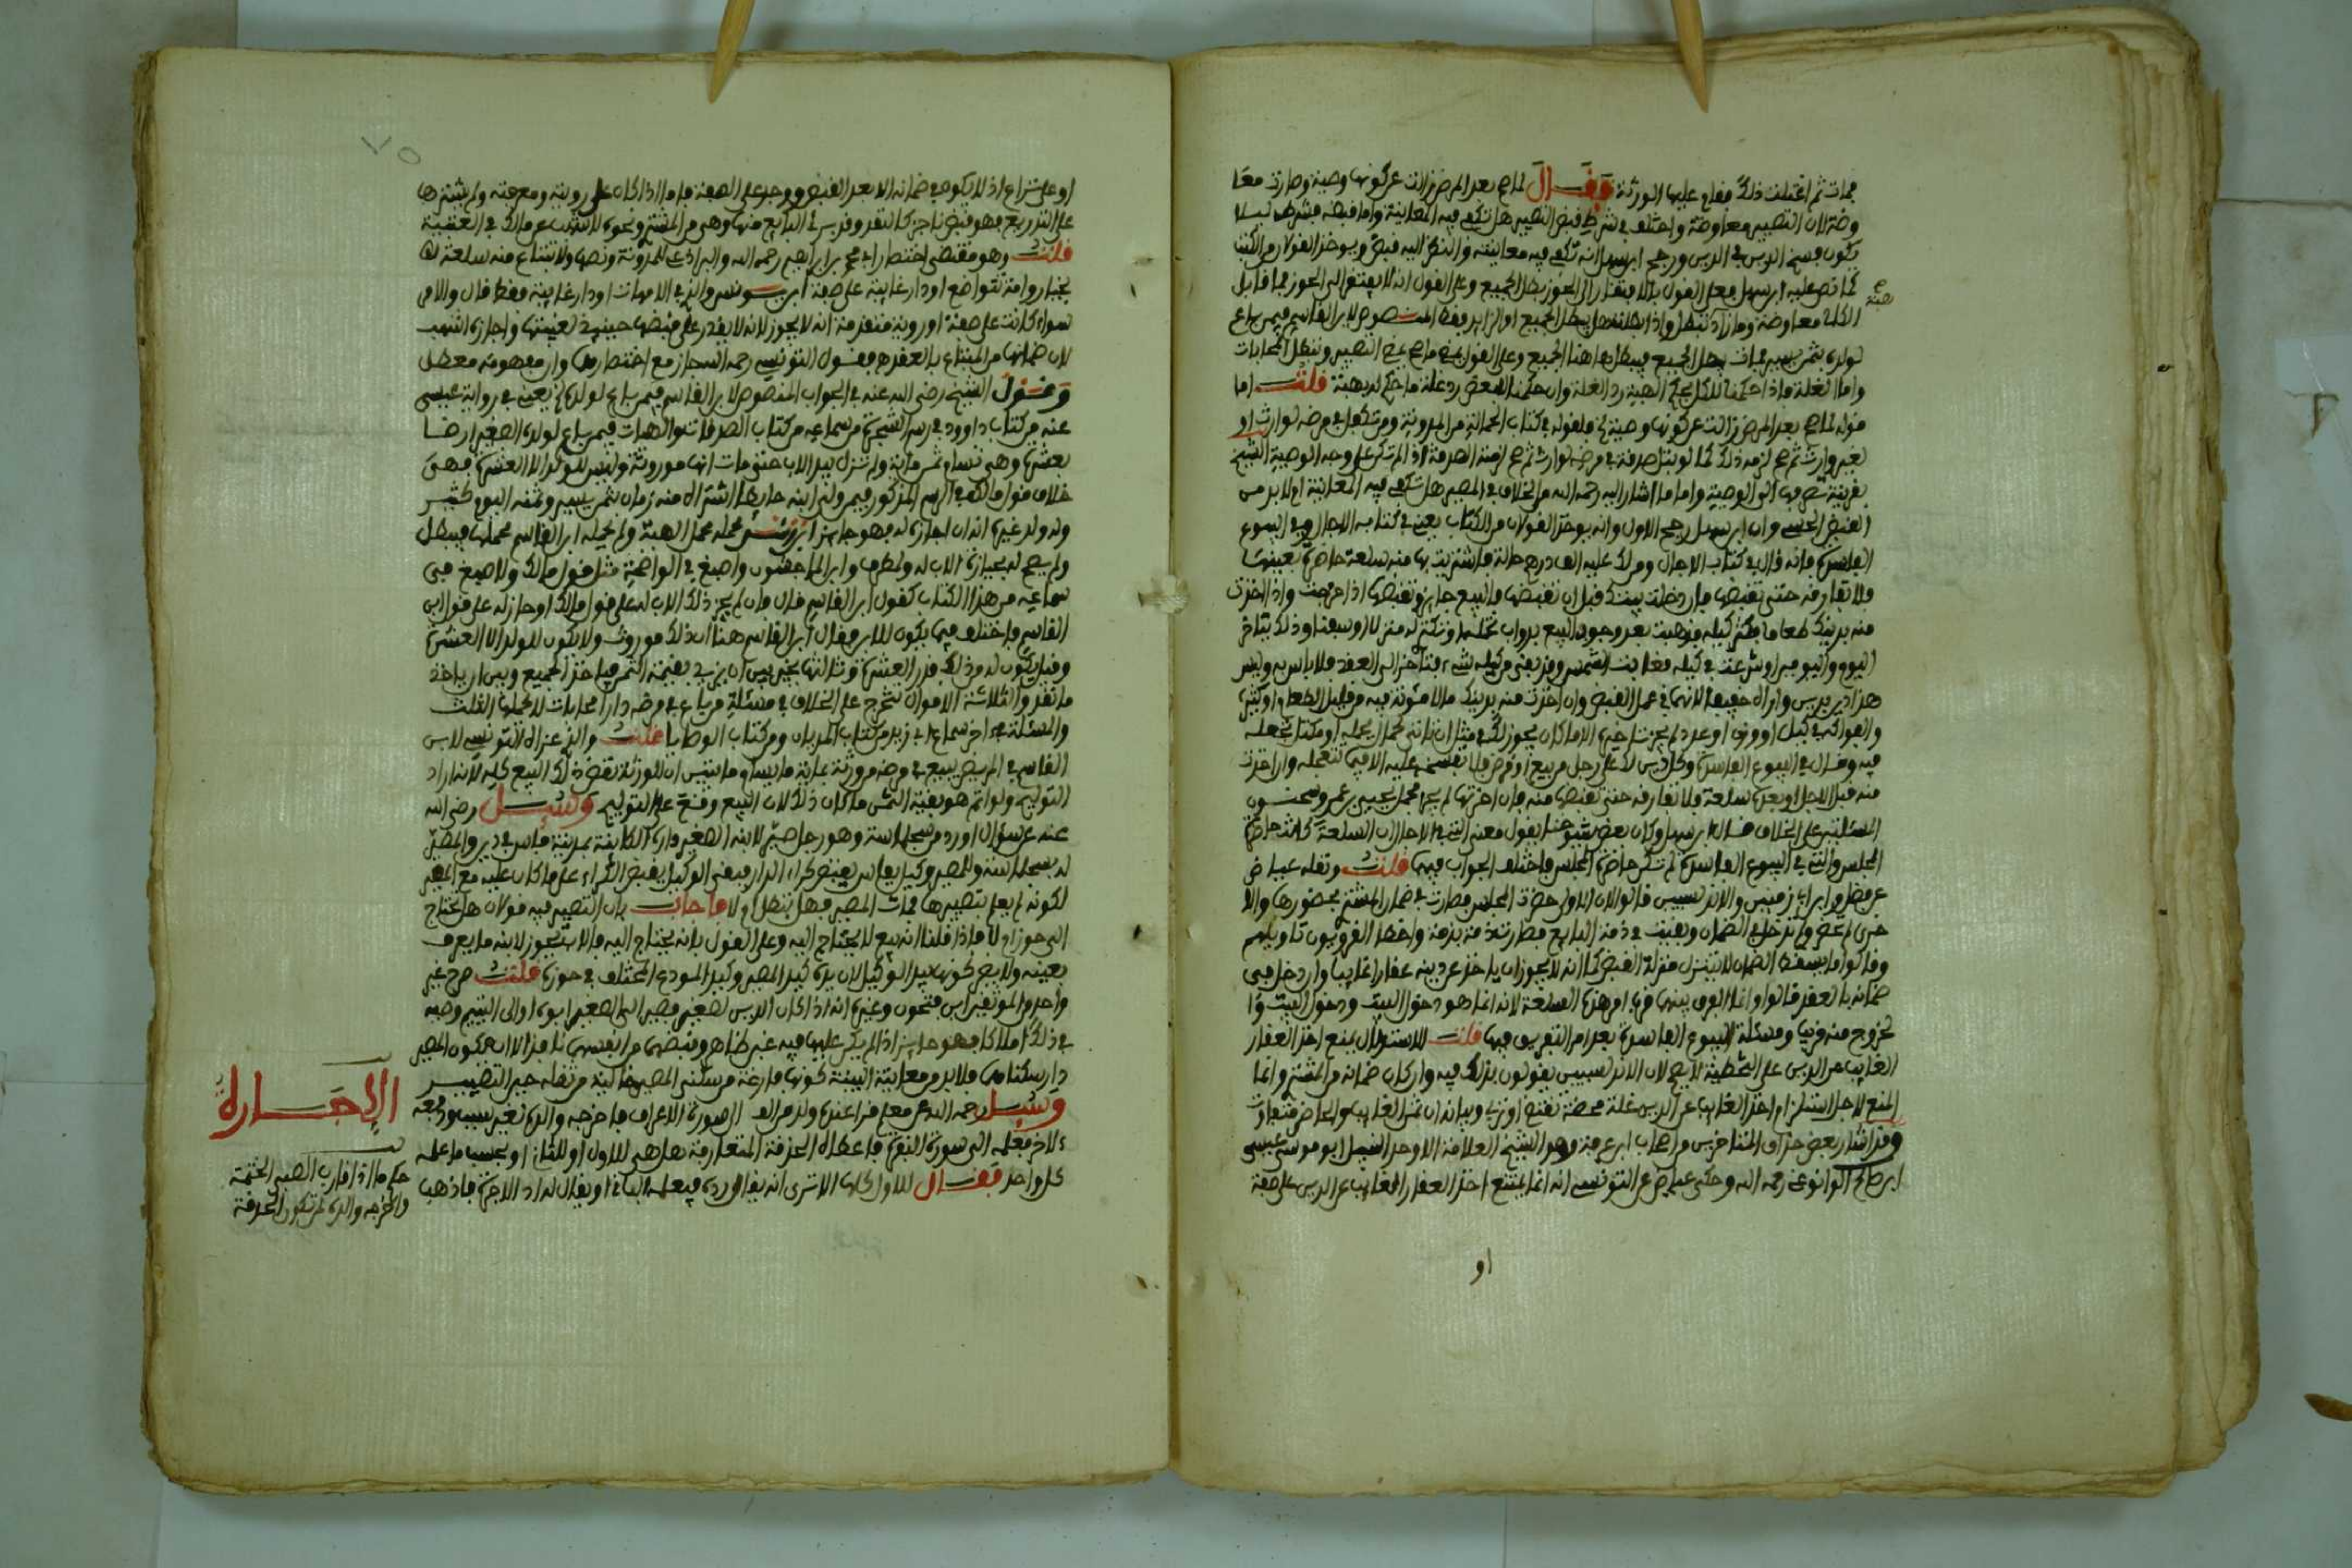 فمات ثم اغتلت ذلك فقام عليها الورثة فقال لما صح بعد المرض زالت عن كونها وصية وصارت معا
وضة لان التصيير معاوضة واختلف في شرط قبض التصيير هل تكفي فيه المعاينة واما قبضه فشرط ليلا
يكون فسخ الدين في الدين ورجح ابن سهل انه تكفي فيه معاينته والنظر اليه قبض ويوخذ القولان من الكتب
كما نص عليه ابن سهل فعلى القول بالافتقار الى الحوز بطل الجميع وعلى القول انه لا يفتقر الى الحوز فما قابل
هبة
الكالئ معاوضة وما زاد تبطل واذا بطلت هل يبطل الجميع او الزايد فقط المنصوص لابن القاسم فيمن باع
لولده بثمن يسير فمات بطل الجميع فيبطل هاهنا الجميع وعلى القول بصح ما صح يصح التصيير وتبطل المحابات
واما الغلة فاذا حكمنا للكل بحكم الهبة رد الغلة وان حكمنا للبعض رد غلة ما حكم له بهبة قلت اما
قوله لما صح بعد المرض زالت عن كونها وصية فلقوله في كتاب الحمالة من المدونة ومن تكفل في مرضه لوارث او
لغير وارث ثم صح لزمه ذلك كما لو بتل صدقة في مرضه لوارث ثم صح لزمته الصدقة اذا لم تكن على وجه الوصية الشيخ
بقرينة صرفها الى الوصية واما ما اشار اليه رحمه الله من الخلاف في المصير هل تكفي فيه المعاينة او لا بد من
القبض الحسي وان ابن سهل رجح الاول وانه يوخذ القولان من الكتاب يعني في كتابه الاجال وفي البيوع
الفاسدة فانه قال في كتاب الاجال ومن لك عليه الف درهم حالة فاشتريت بها منه سلعة حاضرة بعينها
فلا تفارقه حتى تقبضها فان دخلت بيتك قبل ان تقبضها فالبيع جايز وتقبضها اذا خرجت وان اخذت
منه بدينك طعاما يكثر كيله فذهبت بعد وجوب البيع بدواب تحمله او تكتري له منزلا او سفنا وذلك يتاخر
اليوم واليومين او شرعت في كيله فغابت الشمس وقد بقي من كيله شيء فتاخر الى الغد فلا باس به وليس
هذا دين بدين واراه خفيفا لانهما في عمل القبض وان اخذت منه بدينك مالا مئونة فيه من قليل الطعام او كثير
والفواكه في كيل او وزن او عدد لم يجز تاخيره الا ما كان يجوز لك في مثل ان ياتي بحمال يحمله او مكتل يجعله
فيه وقال في البيوع الفاسدة وكل دين لك على رجل من بيع او قرض فلا تفسخه عليه الا فيما تتعجله وان اخذت
منه قبل الاجل او بعده سلعة فلا تفارقه حتى تقبضها منه فان اخرتها لم يجز فحمل يحيى بن عمر وسحنون
المسئلتين على الخلاف قال ابن سهل وكان بعض شيوخنا يقول معنى التي في الاجال ان السلعة كانت حاضرة
المجلس والتي في البيوع الفاسدة لم تكن حاضرة المجلس فاختلف الجواب فيهما قلت ونقله عياض
عن فضل وابن ابي زمنين والاندلسيين قالوا لان الاولى حضرت المجلس فصارت في ضمان المشتري بحضورها والا
خرى لم تحضر ولم تدخل في الضمان وبقيت في ذمة البايع فصارت ذمة بذمة وخطا القرويون تاويلهم
وقالوا ما يسقط الضمان لا يتنزل منزلة القبض كما انه لا يجوز ان ياخذ عن دينه عقارا غايبا وان دخل في
ضمانه بالعقد قالوا وانما الفرق بينهما قرب امر هذه السلعة لانه انما هو دخول البيت ودخول البيت وا
لخروج منه قريب ومسئلة البيوع الفاسدة بعد امر التفريق فيها قلت الاستدلال بمنع اخذ العقار
الغايب من الدين على التخطية لا يصح لان الاندلسيين يقولون بذلك فيه وان كان ضمانه من المشتري وانما
المنع لاجل استلزام اخذ الغايب عن الدين غلة محضة نفع او زيادة وبيانه ان ثمن الغايب والحاضر متفاوت
وقد اشار بعض حذاق المتاخرين من اصحاب ابن عرفة وهو الشيخ العلامة الاوحد النبيل ابو موسى عيسى
ابن صالح الوانوغي رحمه الله وحكى عياض عن التونسي انه انما يمتنع اخذ العقار الغايب عن الدين على صفة
او
او على شراع اذ لا يكون في ضمانه الا بعد القبض ووجوده على الصفة فاما اذا كان على روية ومعرفة ولم يشترها
على التذريع فهو قبض ناجز كالنقد وقد برئ البايع منها وهي من المشتري ونحوه لاشهب عن مالك في العتبية
قلت وهو مقتضى اختصار ابي محمد بن ابي زيد رحمه الله والبراذعي للمدونة ونصها ولا تبتاع منه سلعة لها
بخيار وامة تتواضع او دار غايبة على صفة ابن يونس والذي في الامهات او دار غايبة فقط قال والامر
سواء كانت على صفة او روية متقدمة انه لا يجوز لانه لا يقدر على قبضها حينئذ لغيبتها واجازه اشهب
لان ضمانها من المبتاع بالعقد فقول التونسي رحمه الله جاز مع اختصارها وان مفهومه معطل
وقول الشيخ رضي الله عنه في الجواب المنصوص لابن القاسم فيمن باع لولده الخ يعني في رواية عيسى
عنه من كتاب داوود في رسم الشجرة من سماعه من كتاب الصدقات والهبات فيمن باع لولده الصغير ارضا
بعشرة وهي تساوي ثمن ماية ولم تزل بيد الاب حتى مات انها موروثة وليس للولد الا العشرة فهي
خلاف قول مالك في الرسم المذكور فيمن ولى ابنه حايطا اشتراه منه زمان بثمن يسير وثمنه اليوم كثير
وله ولد غيره انه ان اجازه له فهو جايز ابن رشد محله محمل الهبة ولم يحمله ابن القاسم محملها فيبطل
ولم يصح له بحيازة الاب له ولمطرف وابن الماجشون واصبغ في الواضحة مثل قول مالك ولاصبغ في
سماعه من هذا الكتاب كقول ابن القاسم قال فان لم يحز ذلك الاب له على قول مالك او حاز له على قول ابن
القاسم فاختلف فيما يكون للابن فقال ابن القاسم هنا ان ذلك موروث ولا يكون للولد الا العشرة
وقيل يكون له من ذلك قدر العشرة وثالثها يخير بين ان يزيد بقية الثمن فياخذ الجميع وبين ان ياخذ
ما نقد والثلاثة الاقوال تتخرج على الخلاف في مسئلة من باع في مرضه دارا محابات لا يحملها الثلث
والمسئلة في اخر سماع ابي زيد من كتاب المديان ومن كتاب الوصايا قلت والذي عزاه للتونسي لابن
القاسم في المريض يبيع في مرضه من ورثة غاية ما يساوي ما يتبين ان للورثة نقض ذلك البيع كله لانه اراد
التوليج ولو اتم هو بقية الثمن ما كان ذلك لان البيع وقع على التوليج وسئل رضي الله
عنه عن سؤال اورد من سجلماسة وهو رجل صير لابنه الصغير داره الكاينة بمدينة فاس في دين والمصير
له بسجلماسة وللمصير وكيل بفاس يقبض كراء الدار فبقي الوكيل يقبض الكراء على ما كان عليه مع المصير
لكونه لم يعلم بتصييرها فمات المصير فهل تبطل ام لا فاجاب بان التصيير فيه قولان هل يحتاج
الى حوز ام لا فاذا قلنا انه بيع لا يحتاج اليه وعلى القول بانه يحتاج اليه فالاب يحوز لابنه ما يعرف
بعينه ولا يضر كونها بيد الوكيل لان يده كيد المصير وكيد المودع المختلف في حوزه قلت صرح غير
واحد من الموثقين ابن فتحون وغيره انه اذا كان الدين لصغير فصير الى الصغير ابوه او الى اليتيم وصيه
في ذلك املاكا فهو جايز اذا لم يكن عليهما فيه غبن ظاهر وقبضهما من انفسهما نافذ الا ان يكون المصير
دار سكناهما فلا بد من معاينة البينة كونها فارغة من سكنى المصير خالية من ثقله حين التصيير
وسئل رحمه الله عن معلم قرا عنده ولد من الى سورة الاعراف فاخرجه والده لغير سبب ودفعه
لاخر فعلمه الى سورة البقرة فاعطاه الحذقة المتعارفة هل هي للاول او للثاني او بحسب ما علمه
كل واحد فقال للاول كلها الا ترى انه يقال رده فيعلمه الباقي او يقال له اد الاجرة فاذهب
الاجارة
حكم ما اذا قارب الصبي الختمة
واخرجه والده لمن تكون الحذقة
٧٥